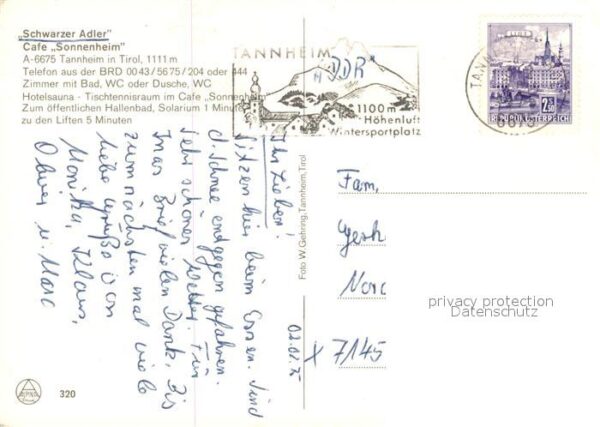 „Schwarzer Adler"
Cafe „Sonnenheim"
A-6675 Tannheim in Tirol, 1111 m
Telefon aus der BRD 0043/5675/204 oder 444
Zimmer mit Bad, WC oder Dusche, WC
Hotelsauna - Tischtennisraum im Cafe „Sonnenheim
Zum öffentlichen Hallenbad, Solarium 1 Minute
zu den Liften 5 Minuten
TANNHEIM
"DDR"
1100 m
Höhenluft
Wintersportplatz
2.50
REPUBLIK ÖSTERREICH
6675
Ihr Lieben!
Sitzen hier beim Essen. Sind
d. Schnee entgegen gefahren.
Sehr schönes Wetter. Für
Imas Brief vielen Dank. Bis
zum nächsten mal viele
liebe Grüße von
Monika, Klaus,
Oliver u. Marc
02.02.75
Foto W. Gehring, Tannheim, Tirol
Fam,
Gerh
Norc
x 7145
privacy protection
Datenschutz
320